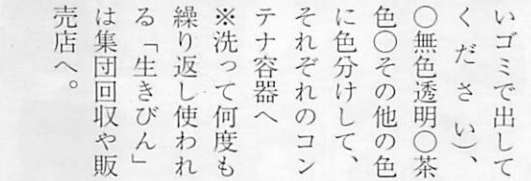 いゴミで出して
ください）、
○無色透明○茶
色○その他の色
に色分けして、
それぞれのコン
テナ容器へ
※洗って何度も
繰り返し使われ
る「生きびん」
は集団回収や販
売店へ。